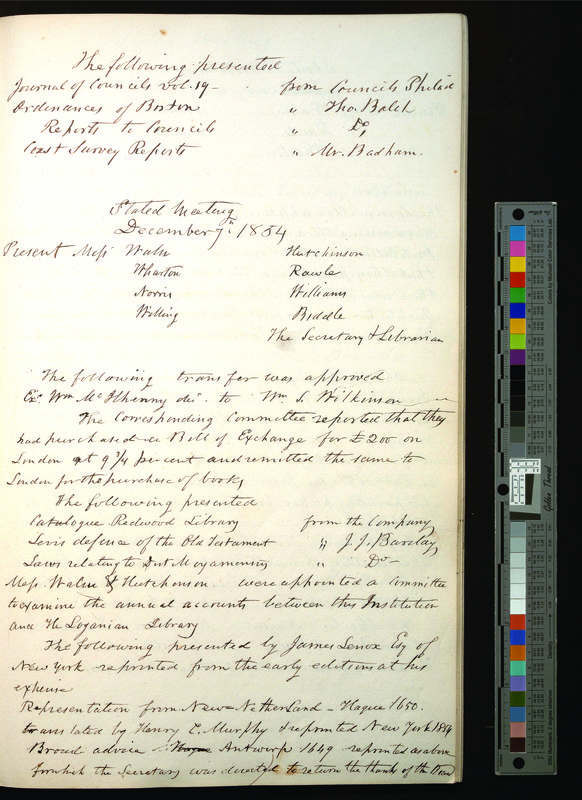 The following presented
Journal of Councils vol. 19 - from Councils Philad
Ordinances of Boston " Tho. Balch
Reports to Councils " Do,
Coast Survey Reports " Mr. Badham.
Stated Meeting
December 7th. 1854
Present Mess Waln Hutchinson
Wharton Rawle
Norris Williams
Welling Biddle
The Secretary & Librarian
The following transfer was approved
Exr. Wm McIlhenny dec. to Wm. S. Wilkinson
The Corresponding Committee reported that they
had purchased a Bill of Exchange for £200 on
London at 9 3/4 per cent and remitted the same to
London for the purchase of books,
The following presented
Catalogue Redwood Library from the Company,
Levis defence of the Old Testament " J. J. Barclay,
Laws relating to Dist Moyamensing " Do -
Mess. Waln & Hutchinson were appointed a Committee
to examine the annual accounts between this Institution
and the Loganian Library
The following presented by James Lenox Esq of
New York reprinted from the early editions at his
expense
Representation from New Netherland - Hague 1650.
translated by Henry C. Murphy & reprinted New York 1854
Broad advice Antwerp 1649 reprinted as above
for which the Secretary was directed to return the thanks of the